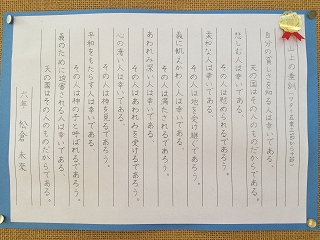 山上の垂訓(マタイ五章三節から十節)
自分の貧しさを知る人は幸いである、
天の国はその人のものだからである。
悲しむ人は幸いである
その人は慰められるであろう。
柔和な人は幸いである
その人は地を受け継ぐであろう。
義に飢えかわく人は幸いである
その人は満たされるであろう。
あわれみ深い人は幸いである
その人はあわれみを受けるであろう。
心の清い人は幸いである
その人は神を見るであろう。
平和をもたらす人は幸いである
その人は神の子と呼ばれるであろう。
義のために迫害される人は幸いである、
天の国はその人のものだからである。
六年 松倉 未栞